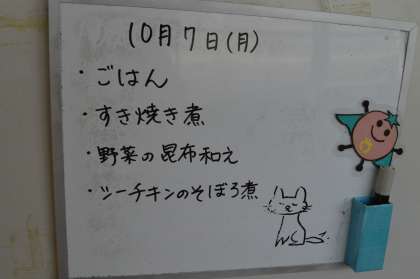 10月7日(月)
・ごはん
・すき焼き煮
・野菜の昆布和え
・シーチキンのそぼろ煮